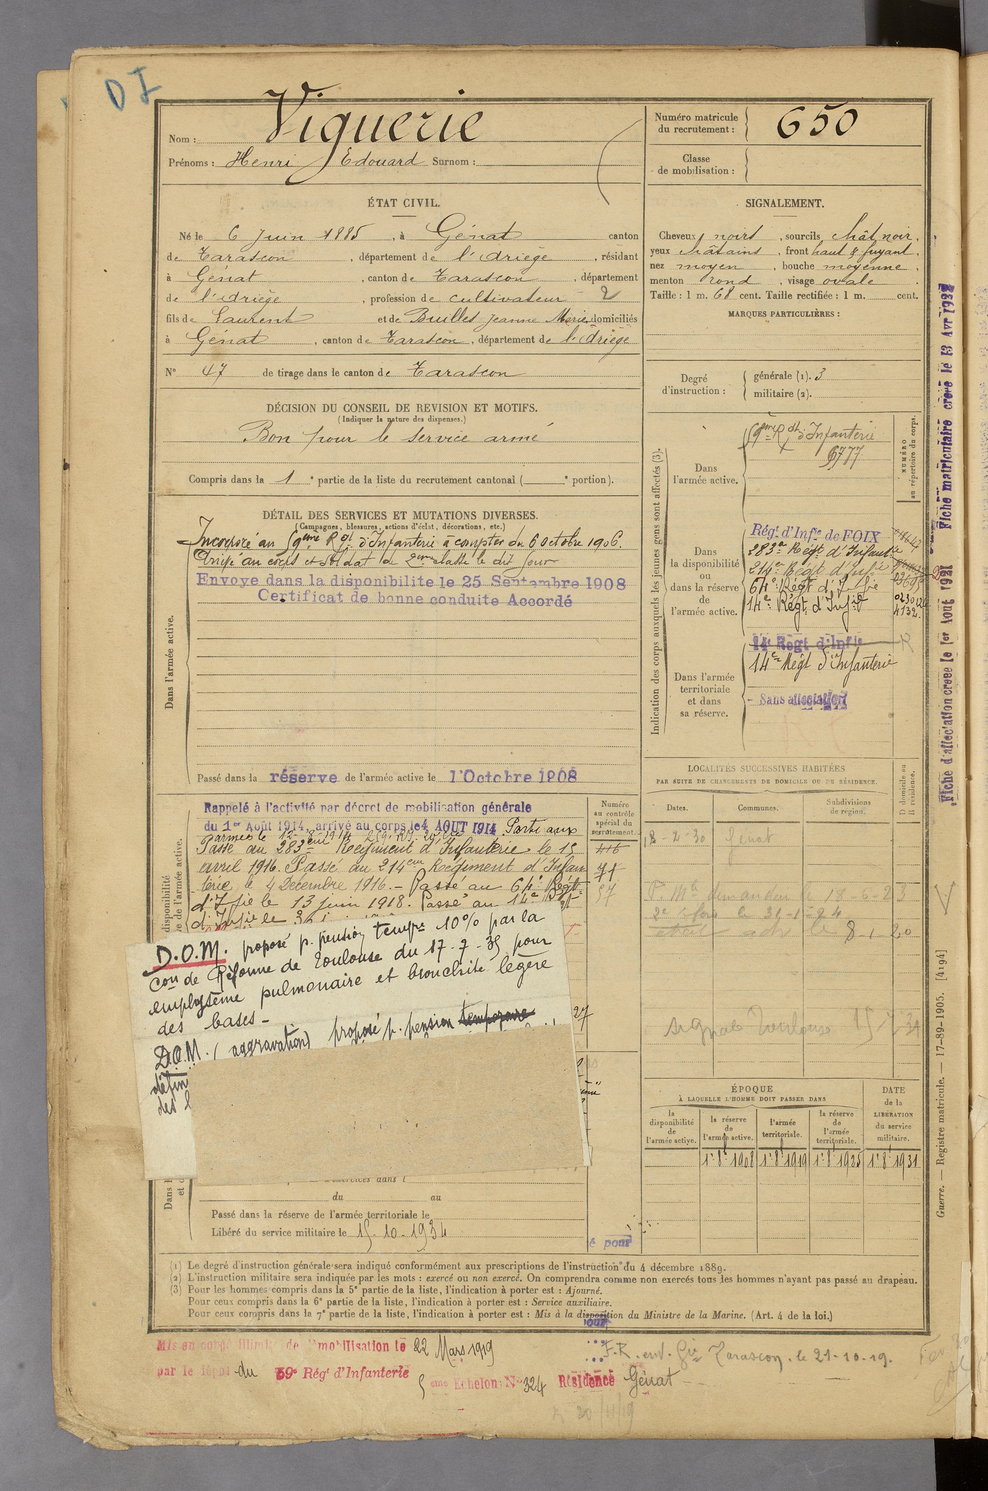 DI
Nom : Viguerie
Prénoms : Henri Edouard Surnom :
Numéro matricule du recrutement : 650
Classe de mobilisation :
ÉTAT CIVIL.
Né le 6 Juin 1885, à Génat canton
de Tarascon, département de l'Ariège, résidant
à Génat, canton de Tarascon, département
de l'Ariège, profession de cultivateur 2
fils de Laurent et de Builles Jeanne Marie domiciliés
à Génat, canton de Tarascon, département de l'Ariège
N° 47 de tirage dans le canton de Tarascon
SIGNALEMENT.
Cheveux noirs, sourcils chât noir,
yeux châtains, front haut & fuyant,
nez moyen, bouche moyenne,
menton rond, visage ovale
Taille : 1 m. 68 cent. Taille rectifiée : 1 m. cent.
MARQUES PARTICULIÈRES :
Degré d'instruction : générale (1). 3
militaire (2).
DÉCISION DU CONSEIL DE REVISION ET MOTIFS.
(Indiquer la nature des dispenses.)
Bon pour le service armé
Compris dans la 1e partie de la liste du recrutement cantonal ( e portion).
DÉTAIL DES SERVICES ET MUTATIONS DIVERSES.
(Campagnes, blessures, actions d'éclat, décorations, etc.)
Incorporé au 59eme Rgt d'Infanterie à compter du 6 octobre 1906.
Arrivé au corps et soldat de 2eme classe le dit jour
Envoye dans la disponibilite le 25 Septembre 1908
Certificat de bonne conduite Accordé
Dans l'armée active.
Passé dans la réserve de l'armée active le 1 Octobre 1908
Indication des corps auxquels les jeunes gens sont affectés (3).
NUMÉRO au répertoire du corps.
Dans l'armée active.
59eme Rgt d'Infanterie
Dans la disponibilité ou dans la réserve de l'armée active.
Régt d'Infie de FOIX
283e Régt d'Infanterie
214e Régt d'Infie
64e Régt d'Infie
14e Régt d'Infie
Dans l'armée territoriale et dans sa réserve.
14e Régt d'Infie
14e Régt d'Infanterie
Sans affectation
Rappelé à l'activité par décret de mobilisation générale
du 1er Août 1914, arrivé au corps le 4 AOUT 1914 Parti aux
armées le
Passé au 283eme Régiment d'Infanterie le 15
avril 1916. Passé au 214eme Régiment d'Infan
terie, le 4 Décembre 1916. - Passé au 64e Régt
d'Ifie le 13 juin 1918. Passé au 14e Rgt
d'Ifie le
Numéro au contrôle spécial du recrutement.
416
D.O.M. proposé p. pension tempre 10% par la
con de Réforme de Toulouse du 17-7-35 pour
emphysème pulmonaire et bronchite légère
des bases -
D.O.M. (aggravation) proposé p. pension temporaire
défin
des
LOCALITÉS SUCCESSIVES HABITÉES
PAR SUITE DE CHANGEMENTS DE DOMICILE OU DE RÉSIDENCE.
Dates. Communes. Subdivisions de région.
D domicile ou R résidence.
Génat
ÉPOQUE
À LAQUELLE L'HOMME DOIT PASSER DANS
la disponibilité de l'armée active.
la réserve de l'armée active.
l'armée territoriale.
la réserve de l'armée territoriale.
DATE de la LIBÉRATION du service militaire.
1-8-1908 1-8-1919 1-8-1925 1-8-1931
du au
Passé dans la réserve de l'armée territoriale le
Libéré du service militaire le 15-10-1934
é pour
(1) Le degré d'instruction générale sera indiqué conformément aux prescriptions de l'instruction du 4 décembre 1889.
(2) L'instruction militaire sera indiquée par les mots : exercé ou non exercé. On comprendra comme non exercés tous les hommes n'ayant pas passé au drapeau.
(3) Pour les hommes compris dans la 5e partie de la liste, l'indication à porter est : Ajourné.
Pour ceux compris dans la 6e partie de la liste, l'indication à porter est : Service auxiliaire.
Pour ceux compris dans la 7e partie de la liste, l'indication à porter est : Mis à la disposition du Ministre de la Marine. (Art. 4 de la loi.)
Mis en congé illimité de démobilisation le 22 Mars 1919
par le dépôt du 59e Régt d'Infanterie
5eme Echelon N° 324 Résidence Génat
F.R. Tarascon, le 21-10-19.
Fiche d'affectation créée le 1er Aout 1931
Fiche matriculaire créée le 13 Avr 1932
Guerre. — Registre matricule. — 17-89-1905. [4194]